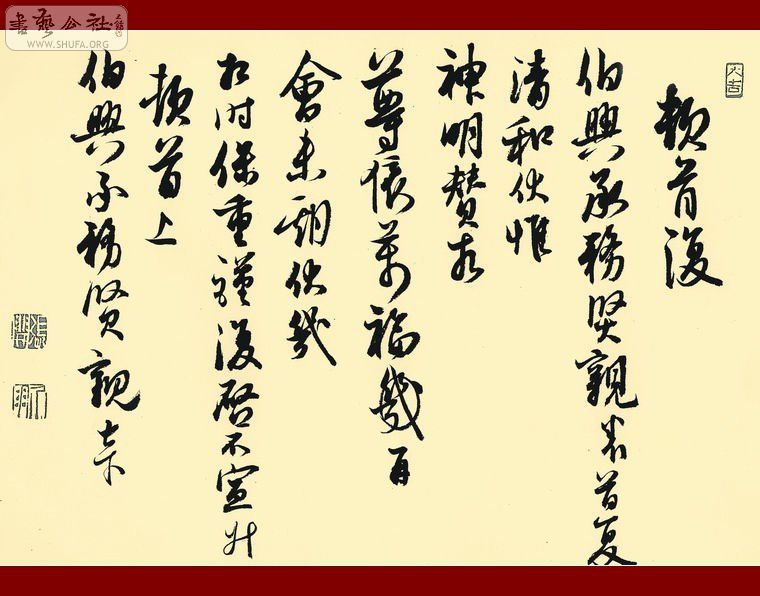 書藝公社
WWW.SHUFA.ORG
大吉
頓首復
伯興承務賢親家首夏
清和伏惟
神明賛
尊萬福幾再
會未期伏幾
相时保重謹復啓不宣
頓首上
伯興承務賢親家